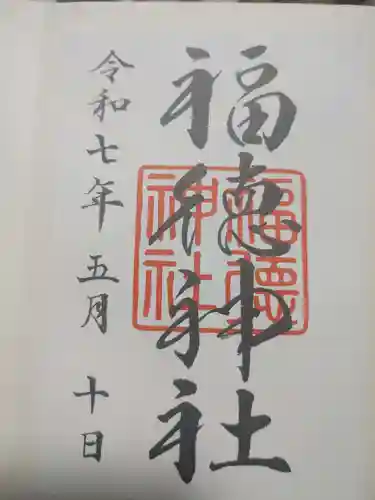 福徳神社
福德神社
令和七年五月十日